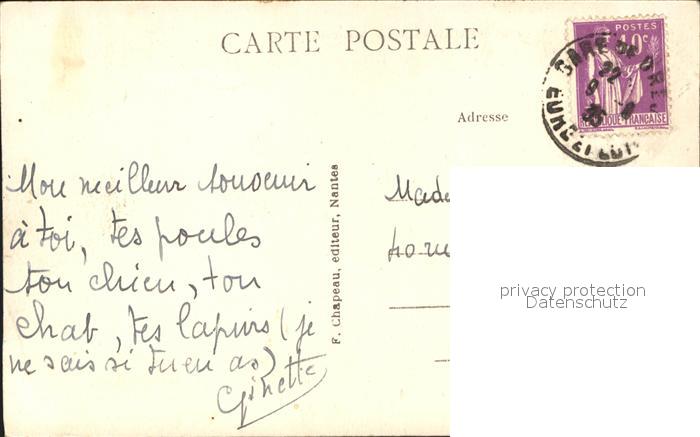 CARTE POSTALE
POSTES
RÉPUBLIQUE FRANÇAISE
GARE DE DREUX
EURE-ET-LOIR
Adresse
Mon meilleur souvenir
à toi, tes poules
ton chien, ton
chat, tes lapins (je
ne sais si tu en as)
Ginette
F. Chapeau, editeur, Nantes
Made
privacy protection
Datenschutz